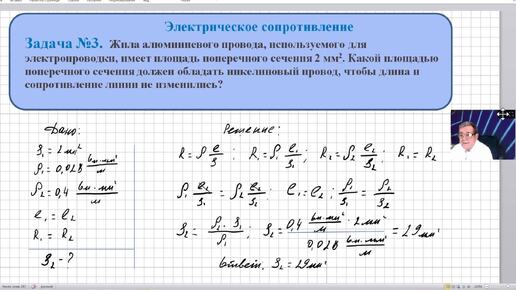 Электрическое сопротивление
Задача №3. Жила алюминиевого провода, используемого для
электропроводки, имеет площадь поперечного сечения 2 мм². Какой площадью
поперечного сечения должен обладать никелиновый провод, чтобы длина и
сопротивление линии не изменились?
Дано:
S₁ = 2 мм²
ρ₁ = 0,028 Ом·мм²/м
ρ₂ = 0,4 Ом·мм²/м
ℓ₁ = ℓ₂
R₁ = R₂
S₂ - ?
Решение:
R = ρ ℓ/S ; R₁ = ρ₁ ℓ₁/S₁ ; R₂ = ρ₂ ℓ₂/S₂ ; R₁ = R₂
ρ₁ ℓ₁/S₁ = ρ₂ ℓ₂/S₂ ; ℓ₁ = ℓ₂ ; ρ₁/S₁ = ρ₂/S₂
S₂ = ρ₂ · S₁/ρ₁ ; S₂ = 0,4 Ом·мм²/м · 2 мм² / 0,028 Ом·мм²/м = 29 мм²
Ответ: S₂ = 29 мм²